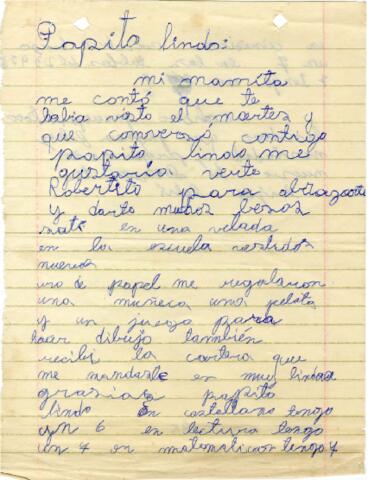 Papito lindo:
mi mamita
me contó que te
habia visto el martes y
que conversó contigo
papito lindo me
gustaría verte
Robertito para abrazarte
y darte muchos besos
sali en una velada
en la escuela vestidos
nuevos
uno de papel me regalaron
una muñeca una pelota
y un juego para
hacer dibujo también
recibí la cartera que
me mandaste en muy linda
gracias papito
lindo en castellano tengo
un 6 en lectura tengo
un 7 en matematicas tengo 7